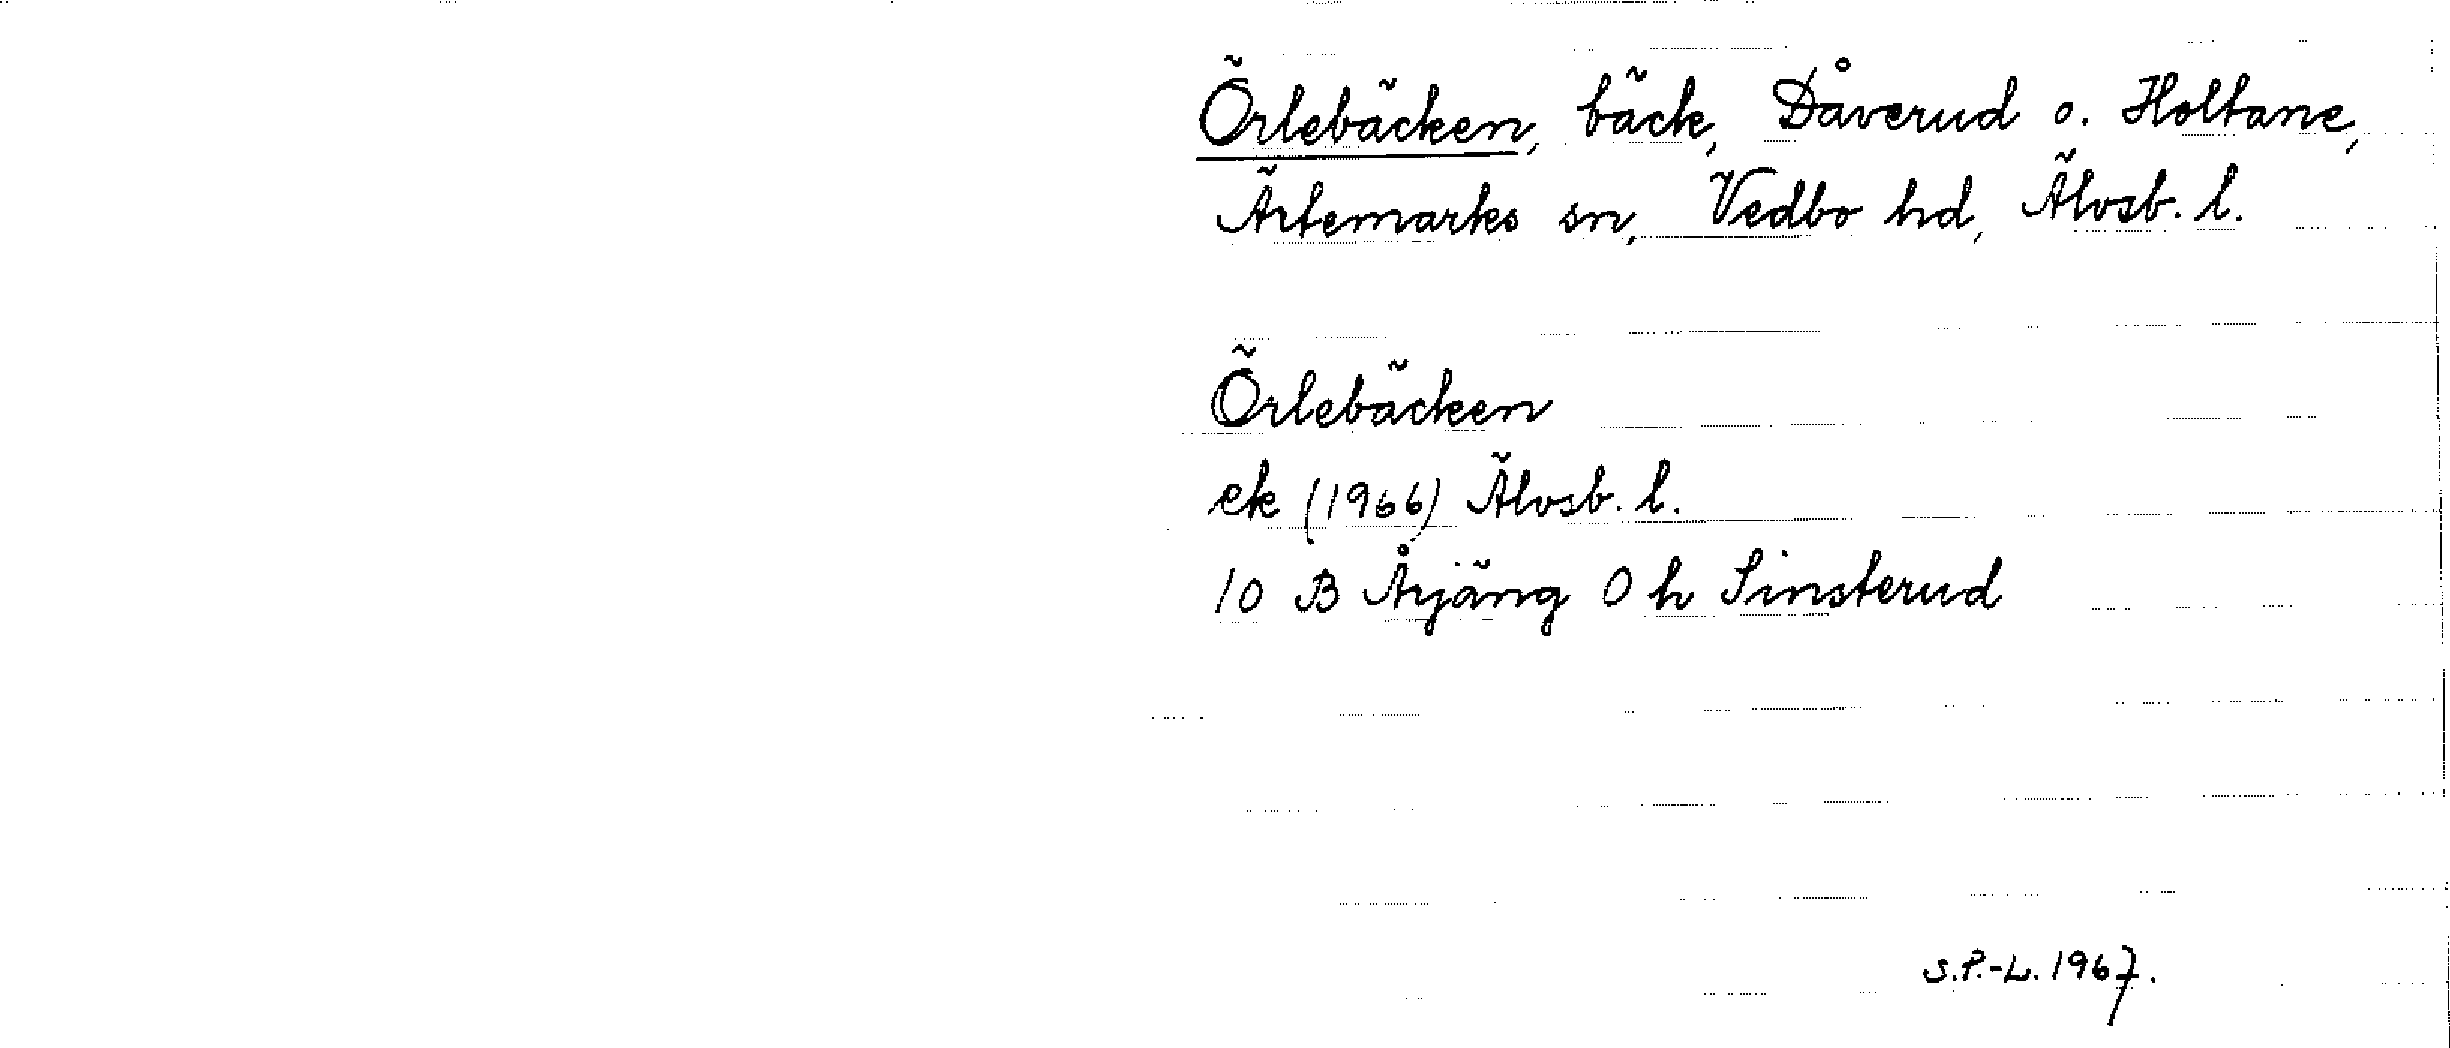 Örlebäcken, bäck, Dåverud o. Holtane,
Ärtemarks sn, Vedbo hd, Älvsb. l.
Örlebäcken
ek (1966) Älvsb. l.
10 B Årjäng 0 h Sinsterud
S.P.-L. 1967.